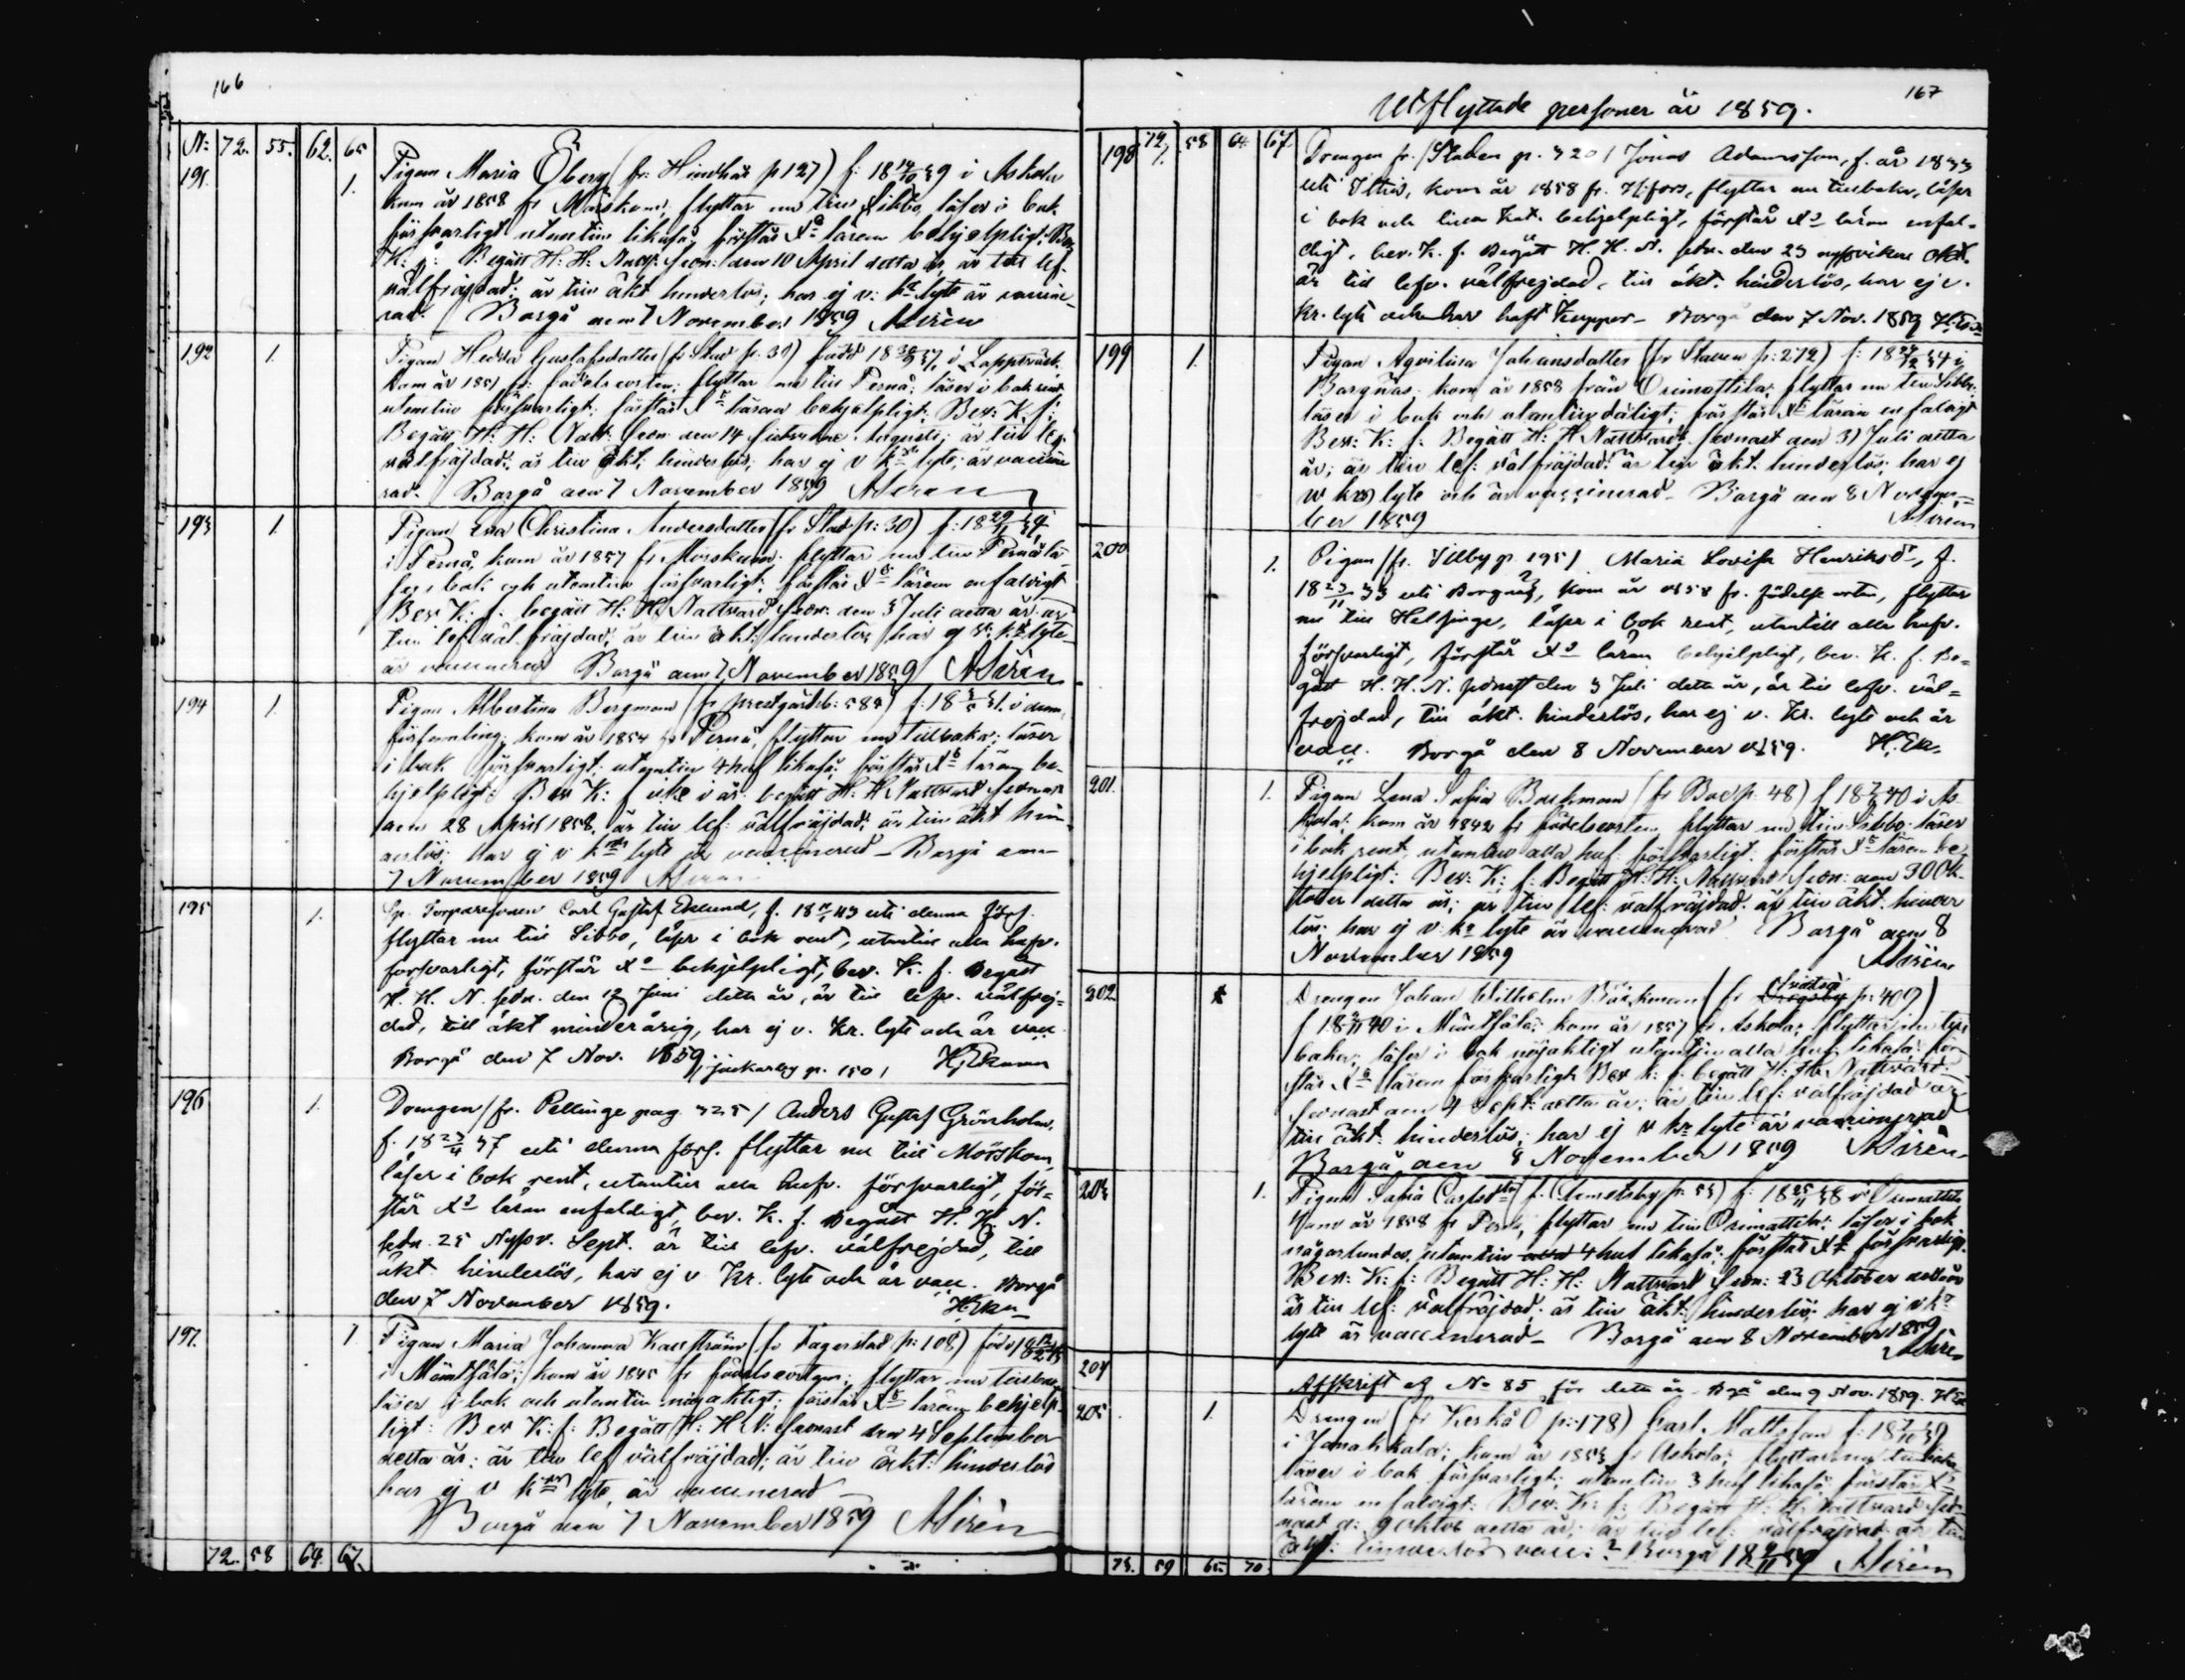 166
N: 72. 55. 62. 65
191. 1. Pigan Maria Öberg (fr: Hindhår p 127) f: 18 14/10 39 i Askola
kom år 1858 fr Mörskom, flyttar nu till Sibbo, läser i bok
försvarligt utantill likaså, förstår Xs läran behjelpligt: Bev:
K: f: Begått H: H: Nattv: Sedn: den 10 April detta år, är till lef.
välfräjdad: är till äkt hinderlös; har ej v: kr lyte är vaccine
rad. Borgå den 7 November 1859 Alirén
192 1. Pigan Hedda Gustafsdotter (fr Stad p. 30) född 18 37, i Lappträsk
kom år 1851 fr: födelseorten; flyttar nu till Pernå; läser i bok rent
utantill försvarligt; förstår Xs läran behjelpligt; Bev: K: f:
Begått H: H: Nattv: Sedn: den 14 sistvikne Augusti; är till lef:
välfräjdad; är till äkt; hinderlös; har ej v kr lyte; är vaccine
rad. Borgå den 7 November 1859 Alirén
193 1. Pigan Eva Christina Andersdotter (fr Stad p: 30) f: 18 29/11 34
i Pernå, kom år 1857 fr Mörskom; flyttar nu till Pernå; lä
ser i bok och utantill försvarligt; förstår Xs läran enfaldigt
Bev K: f: begått H: H: Nattvard Sedn: den 3 Juli detta år: är
till lef: välfräjdad; är till äkt: hinderlös; har ej v: kr lyte
är vaccinerad Borgå den 7 November 1859 Alirén
194 1. Pigan Albertina Bergman (fr prestgårdsb: 584) f: 18 31. i denna
församling; kom år 1854 fr Pernå, flyttar nu tillbaka; läser
i bok försvarligt; utantill 4 huf likaså; förstår Xs läran be-
hjelpligt: Bev K: f icke i år: begått H: H: Nattvard Sednast
den 28 April 1858, är till lef: välfräjdad; är till äkt hin
derlös; har ej v: kr lyte är vaccinerad — Borgå den
7 November 1859 Alirén
195 1. Sp. Torparesonen Carl Gustaf Eklund, f. 18 43 uti denna förs.
flyttar nu till Sibbo, läser i bok rent, utantill alla hufv.
försvarligt, förstår Xs behjelpligt, bev. K. f. Begått
H. H. N. sedn. den 12 Juni detta år, är till lefv. välfrej=
dad, till äkt minderårig, har ej v. Kr. lyte och är vacc.
Borgå den 7 Nov. 1859, jackarby p. 150 / H. Ekman
196 1. Drengen / fr. Pellinge pag 325 / Anders Gustaf Grönholm,
f. 18 23/4 37 uti denna förs. flyttar nu till Mörskom,
läser i bok rent, utantill alla hufv. försvarligt, för=
står Xs läran enfaldigt, bev. K. f. Begått H. H. N.
sedn. 25 nyssv. Sept. är till lefv. välfrejdad, till
äkt hinderlös, har ej v Kr. lyte och är vacc. Borgå
den 7 November 1859. H. Ekn
197. 1. Pigan Maria Johanna Kaustrám (fr Fagerstad p: 108) född
i Mäntsälä; kom år 1845 fr födelseorten; flyttar nu tillbaka
läser i bok och utantill nöjaktigt; förstår Xs läran behjelp
ligt: Bev K: f: Begått H: H: N: Sednast den 4 September
detta år: är till lef välfräjdad; är till äkt: hinderlös
har ej v kr lyte, är vaccinerad
Borgå den 7 November 1859 Alirén
72. 58 64 67.
Utflyttade personer år 1859. 167
198 72 58 64 67 Drengen fr. / Staden p. 320 / Jonas Adamsson, f. år 1833
uti Ittis, kom år 1858 fr. H:fors, flyttar nu tillbaka, läser
i bok och lilla kat. behjelpligt, förstår Xs läran enfal-
digt, bev. K. f. Begått H. H. N. sedn. den 23 nyssvikne okt.
är till lefv. välfrejdad, till äkt. hinderlös, har ej v.
kr. lyte och har haft koppor — Borgå den 7 Nov. 1859 H. Ek
199 1. Pigan Agvilina Johansdotter (fr Staden p: 272) f: 18 34 i
Borgnäs; kom år 1858 från Orimattila; flyttar nu till Sibbo;
läser i bok och utantill dåligt; förstår Xs läran enfaldigt
Bev: K: f: Begått H: H: Nattvard Sednast den 31 Juli detta
år; är till lef: välfräjdad; är till äkt: hinderlös; har ej
v kr lyte och är vaccinerad — Borgå den 8 Novem=
ber 1859 Alirén
200 1. Pigan / fr. Illby p. 195 / Maria Lovisa Henriksdr, f.
18 23/11 33 uti Borgnäs, kom år 1858 fr. födelse orten, flyttar
nu till Helsinge, läser i bok rent, utantill alla hufv.
försvarligt, förstår Xs läran behjelpligt, bev. K. f. Be=
gått H. H. N. sednast den 3 Juli detta år, är till lefv. väl=
frejdad, till äkt. hinderlös, har ej v. Kr. lyte och är
vacc. Borgå den 8 November 1859. H. Ek.
201. 1. Pigan Lena Sofia Backman (fr Boe p: 48) f 18 40 i As
kola; kom år 1842 fr födelseorten, flyttar nu till Sibbo; läser
i bok rent, utantill alla huf: försvarligt: förstår Xs läran be
hjelpligt: Bev: K: f: Begått H: H: Nattvard Sedn: den 30 Ok-
tober detta år; är till lef: välfräjdad; är till äkt: hinder
lös; har ej v: kr lyte är vaccinerad Borgå den 8
November 1859 Alirén
202 1 Drengen Johan Wilhelm Böckman (fr p: 409)
f 18 40 i Mäntsälä; kom år 1857 fr Askola; flyttar nu till
baka; läser i bok nöjaktigt utantill alla huf: likaså: för
står Xs läran försvarligt Bev K: f: begått H: H: Nattvard
Sednast den 4 Sept: detta år; är till lef: välfräjdad är
till äkt: hinderlös; har ej v kr lyte är vaccinerad
Borgå den 8 November 1859 Alirén
203 1. Pigan Sofia Carlsdtr (fr. Clemetsby p: 53) f: 18 25/11 38 i Orimattila
kom år 1858 fr Pernå, flyttar nu till Orimattila; läser i bok
någorlunda, utantill 4 huf likaså: förstår Xs försvarligt.
Bev: K: f: Begått H: H: Nattvard Sedn: 23 Oktober detta år
är till lef: välfräjdad; är till äkt: hinderlös; har ej v kr
lyte är vaccinerad — Borgå den 8 November 1859 Alirén
204 Afskrift af No 85 för detta år. Bgå den 9 Nov. 1859. H Ek
205 1. Drengen (fr Kerkå O p: 178) Carl Mattsson f: 18 39
i Janakkala; kom år 1853 fr Askola; flyttar nu tillbaka
läser i bok försvarligt; utantill 3 huf likaså förstår Xs
läran enfaldigt: Bev: K: f: Begått H: H: Nattvard Sed
nast d: 9 oktob detta år; är till lef: välfräjdad är till
äkt: hinderlös vacc: ? Borgå 18 9/11 59 Alirén
73. 59 65. 70